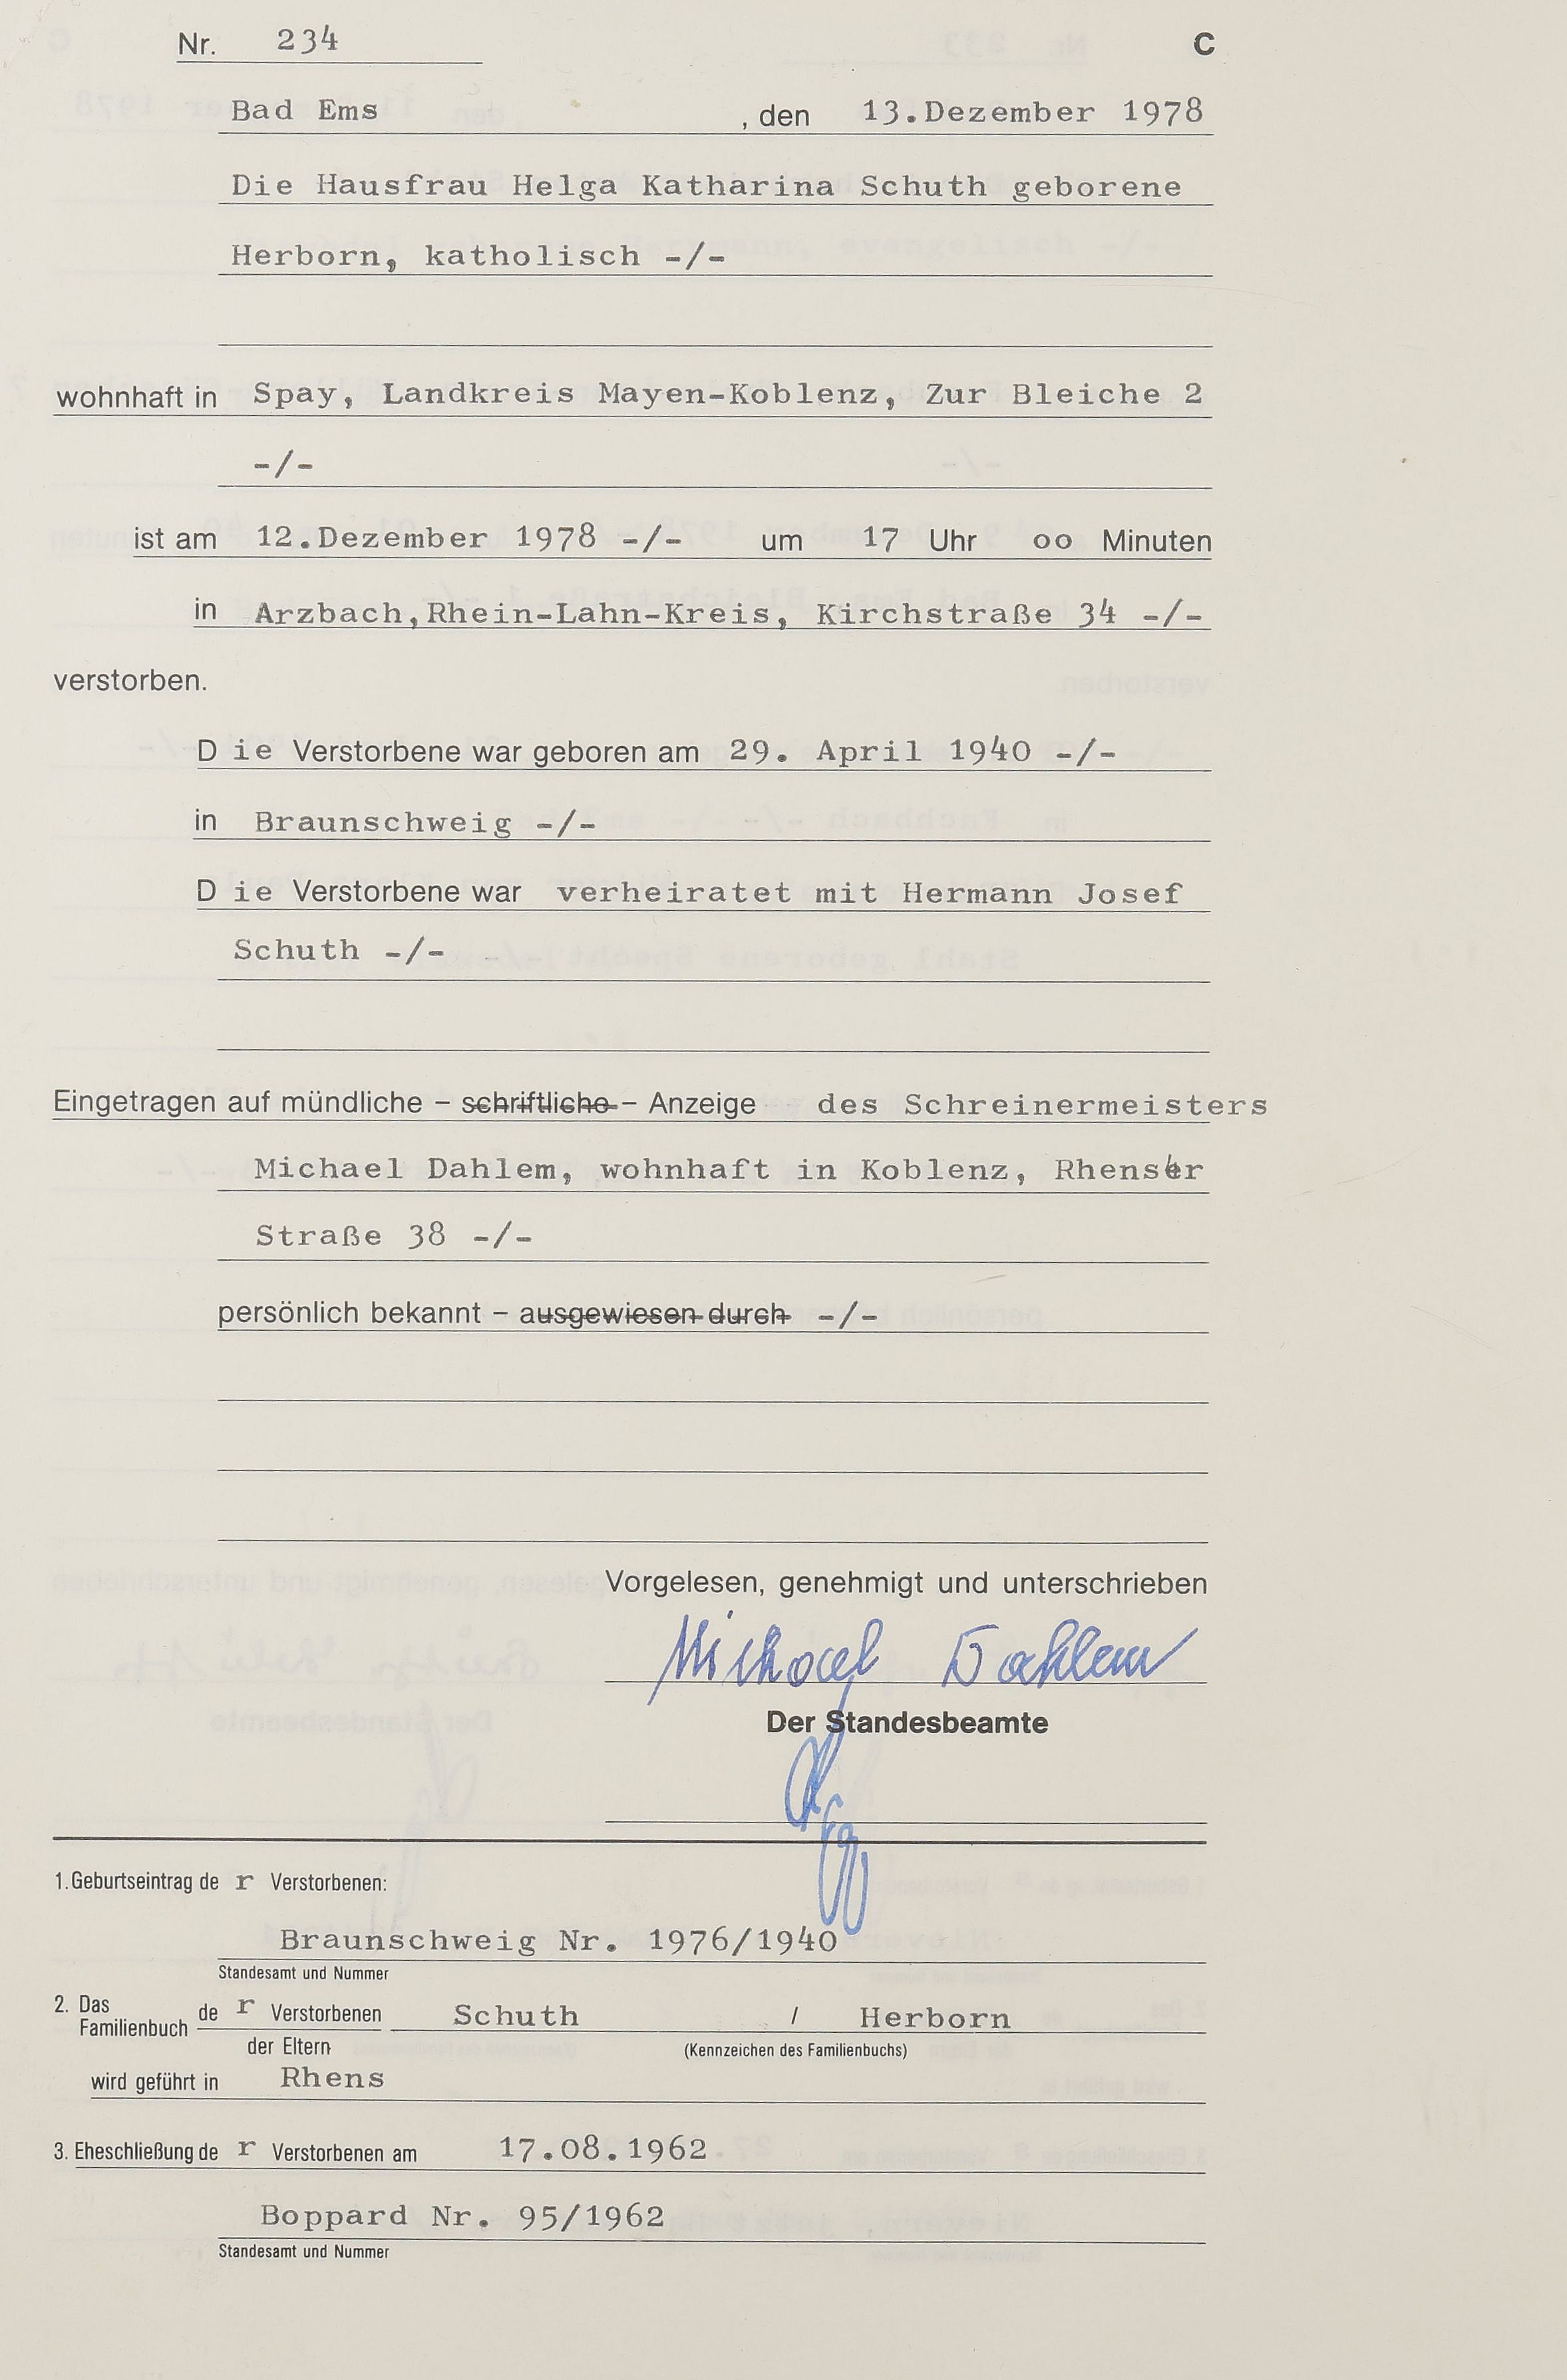 Nr. 234 C
Bad Ems , den 13.Dezember 1978
Die Hausfrau Helga Katharina Schuth geborene
Herborn, katholisch -/-
wohnhaft in Spay, Landkreis Mayen-Koblenz, Zur Bleiche 2
-/-
ist am 12.Dezember 1978 -/- um 17 Uhr oo Minuten
in Arzbach,Rhein-Lahn-Kreis, Kirchstraße 34 -/-
verstorben.
D ie Verstorbene war geboren am 29. April 1940 -/-
in Braunschweig -/-
D ie Verstorbene war verheiratet mit Hermann Josef
Schuth -/-
Eingetragen auf mündliche – schriftliche – Anzeige des Schreinermeisters
Michael Dahlem, wohnhaft in Koblenz, Rhenser
Straße 38 -/-
persönlich bekannt – ausgewiesen durch -/-
Vorgelesen, genehmigt und unterschrieben
Michael Dahlem
Der Standesbeamte
1. Geburtseintrag de r Verstorbenen:
Braunschweig Nr. 1976/1940
Standesamt und Nummer
2. Das Familienbuch de r Verstorbenen Schuth / Herborn
der Eltern (Kennzeichen des Familienbuchs)
wird geführt in Rhens
3. Eheschließung de r Verstorbenen am 17.08.1962
Boppard Nr. 95/1962
Standesamt und Nummer